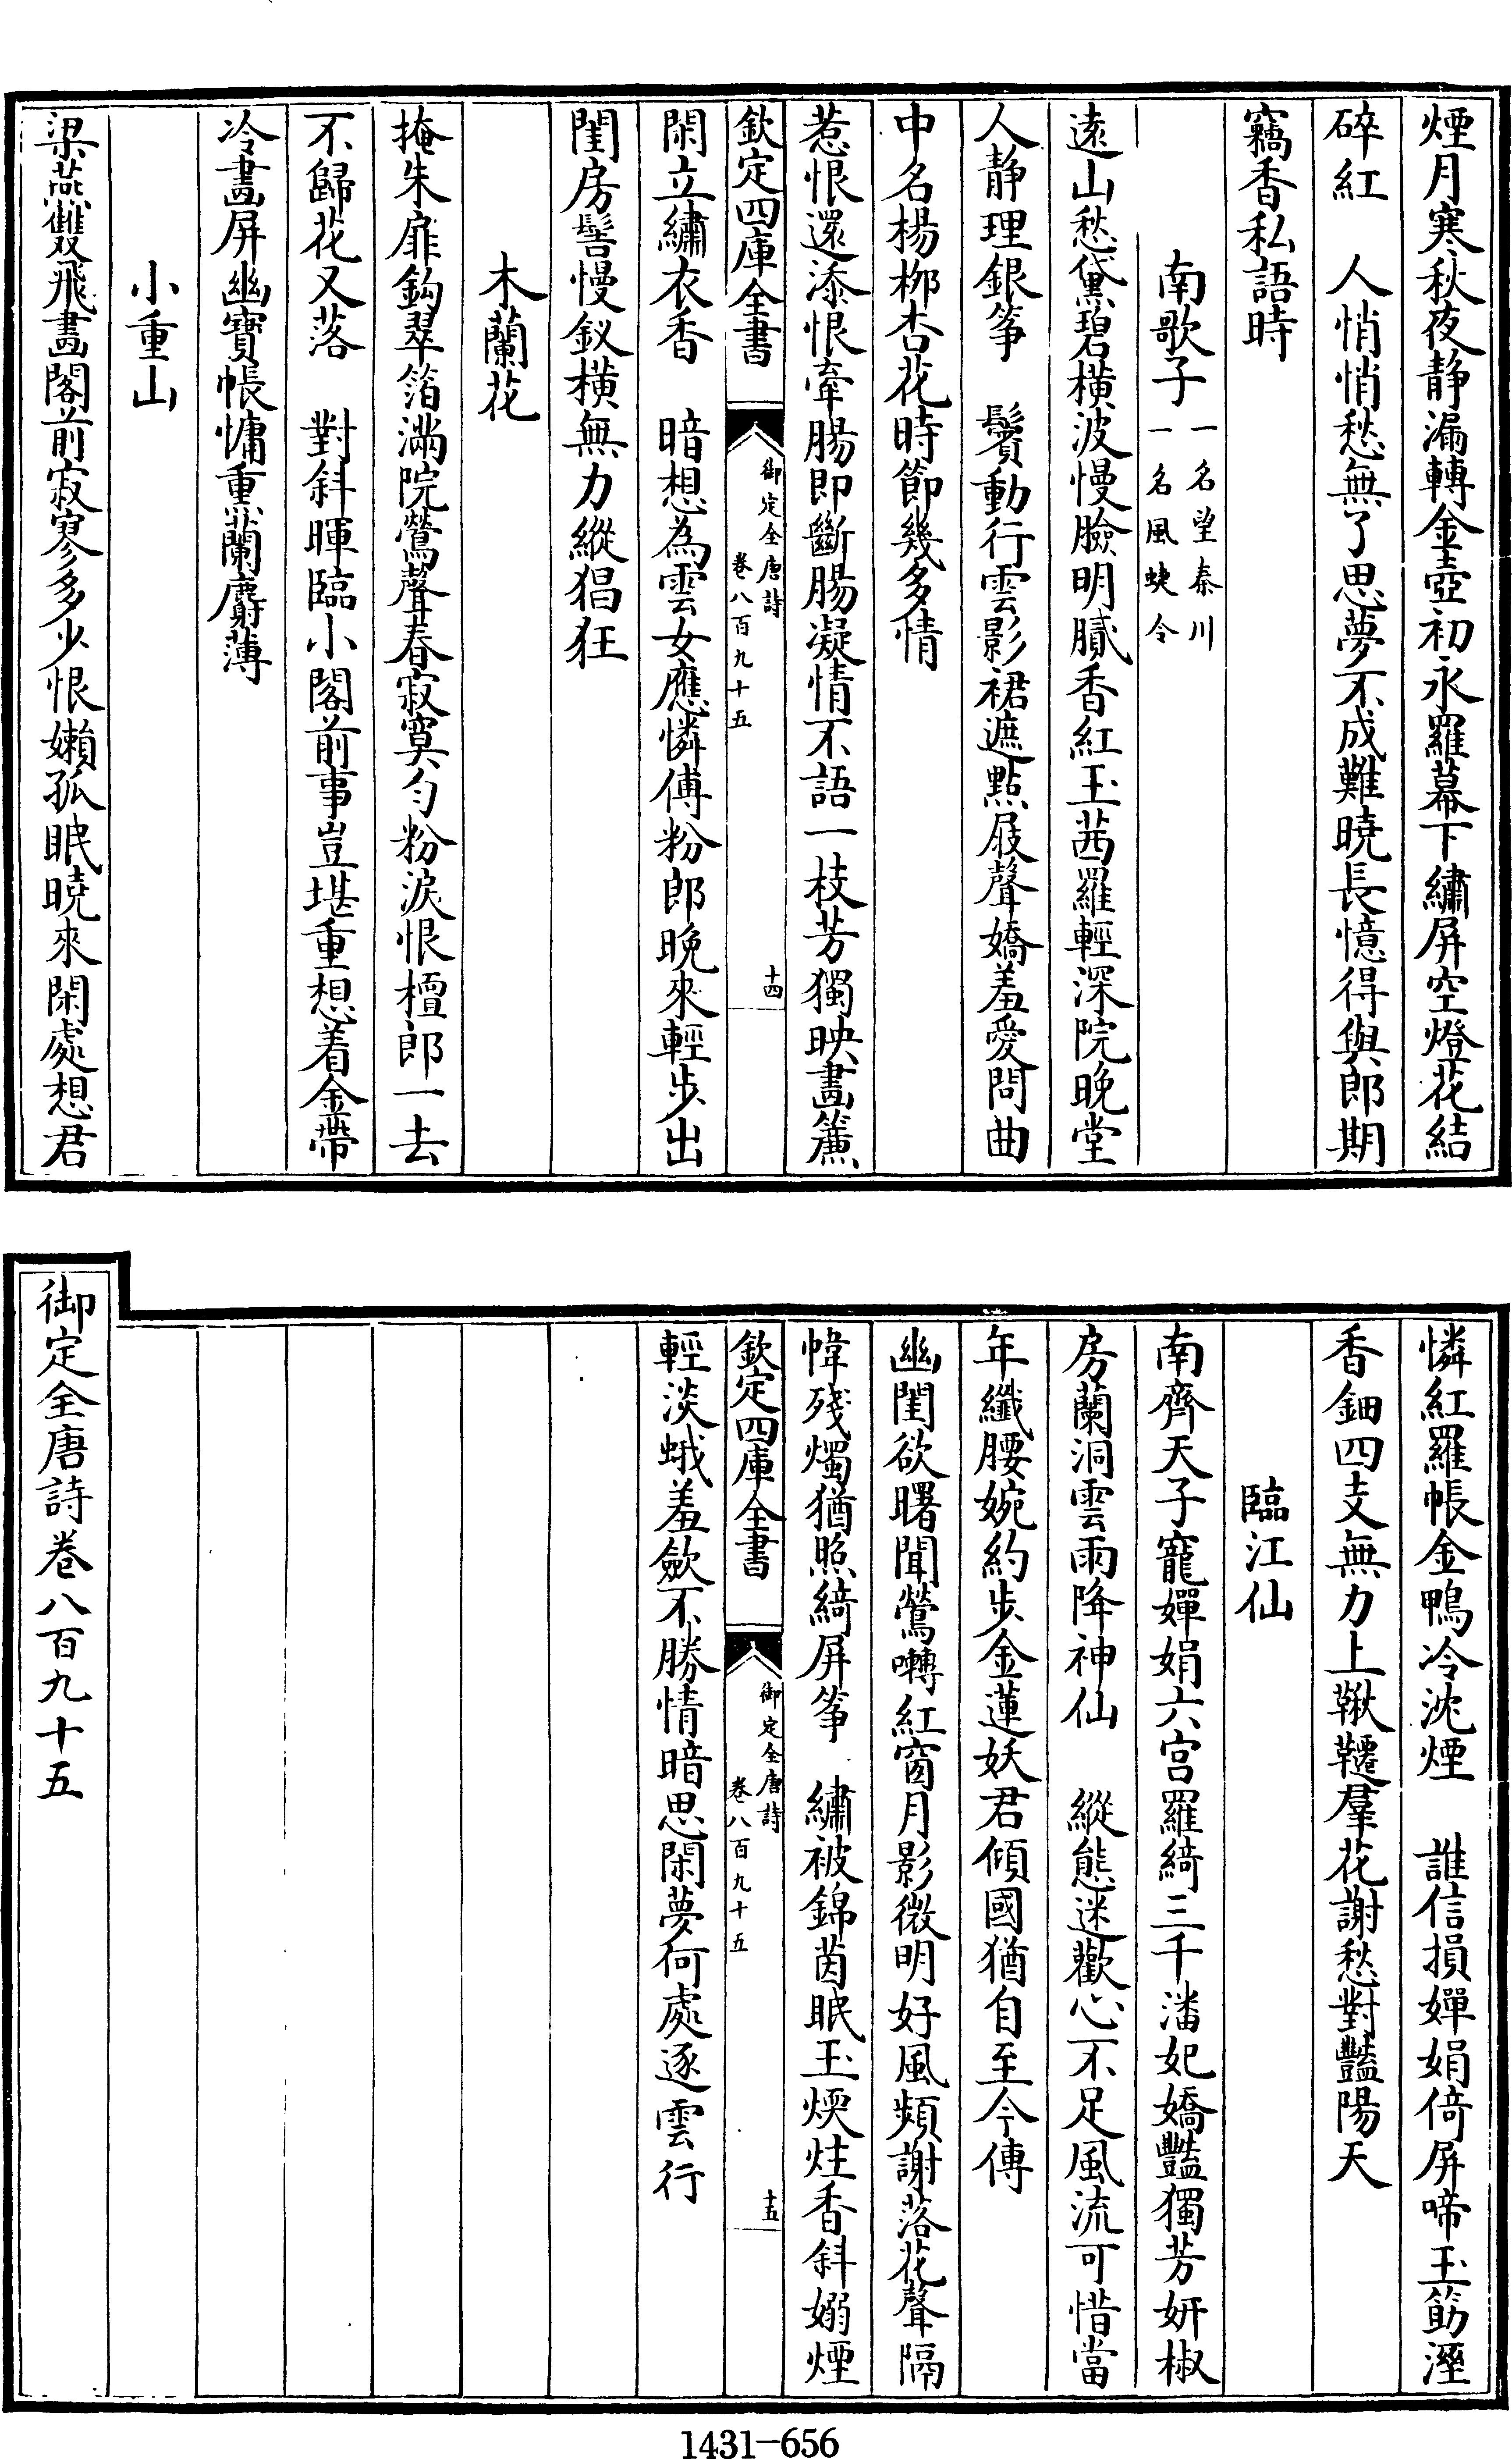 煙月寒秋夜静漏轉金壺初永羅幕下繡屏空燈花結
碎紅　人悄悄愁無了思夢不成難曉長憶得與郎期
竊香私語時
南歌子一名望秦川
一名風蜨令
遠山愁黛碧横波慢臉明膩香紅玉茜羅輕深院晚堂
人静理銀筝　鬢動行雲影裙遮點屐聲嬌羞愛問曲
中名楊柳杏花時節幾多情
惹恨還添恨牽腸即斷腸凝情不語一枝芳獨映畫簾
欽定四庫全書
御定全唐詩
卷八百九十五
十四
閑立繡衣香　暗想為雲女應憐傅粉郎晚來輕步出
閨房髻慢釵横無力縱猖狂
木蘭花
掩朱扉鈎翠箔滿院鶯聲春寂寞匀粉淚恨檀郎一去
不歸花又落　對斜暉臨小閣前事豈堪重想着金帶
冷畫屏幽寶帳慵熏蘭麝薄
小重山
梁燕雙飛畫閣前寂寥多少恨嬾孤眠曉來閑處想君
憐紅羅帳金鴨冷沈煙　誰信損嬋娟倚屏啼玉筯溼
香鈿四支無力上鞦韆羣花謝愁對豔陽天
臨江仙
南齊天子寵嬋娟六宫羅綺三千潘妃嬌豔獨芳妍椒
房蘭洞雲雨降神仙　縱態迷歡心不足風流可惜當
年纖腰婉約步金蓮妖君傾國猶自至今傳
幽閨欲曙聞鶯囀紅窗月影微明好風頻謝落花聲隔
幃殘燭猶照綺屏筝　繡被錦茵眠玉煖炷香斜嫋煙
欽定四庫全書
御定全唐詩
卷八百九十五
十五
輕淡蛾羞歛不勝情暗思閑夢何處逐雲行
御定全唐詩卷八百九十五
1431-656